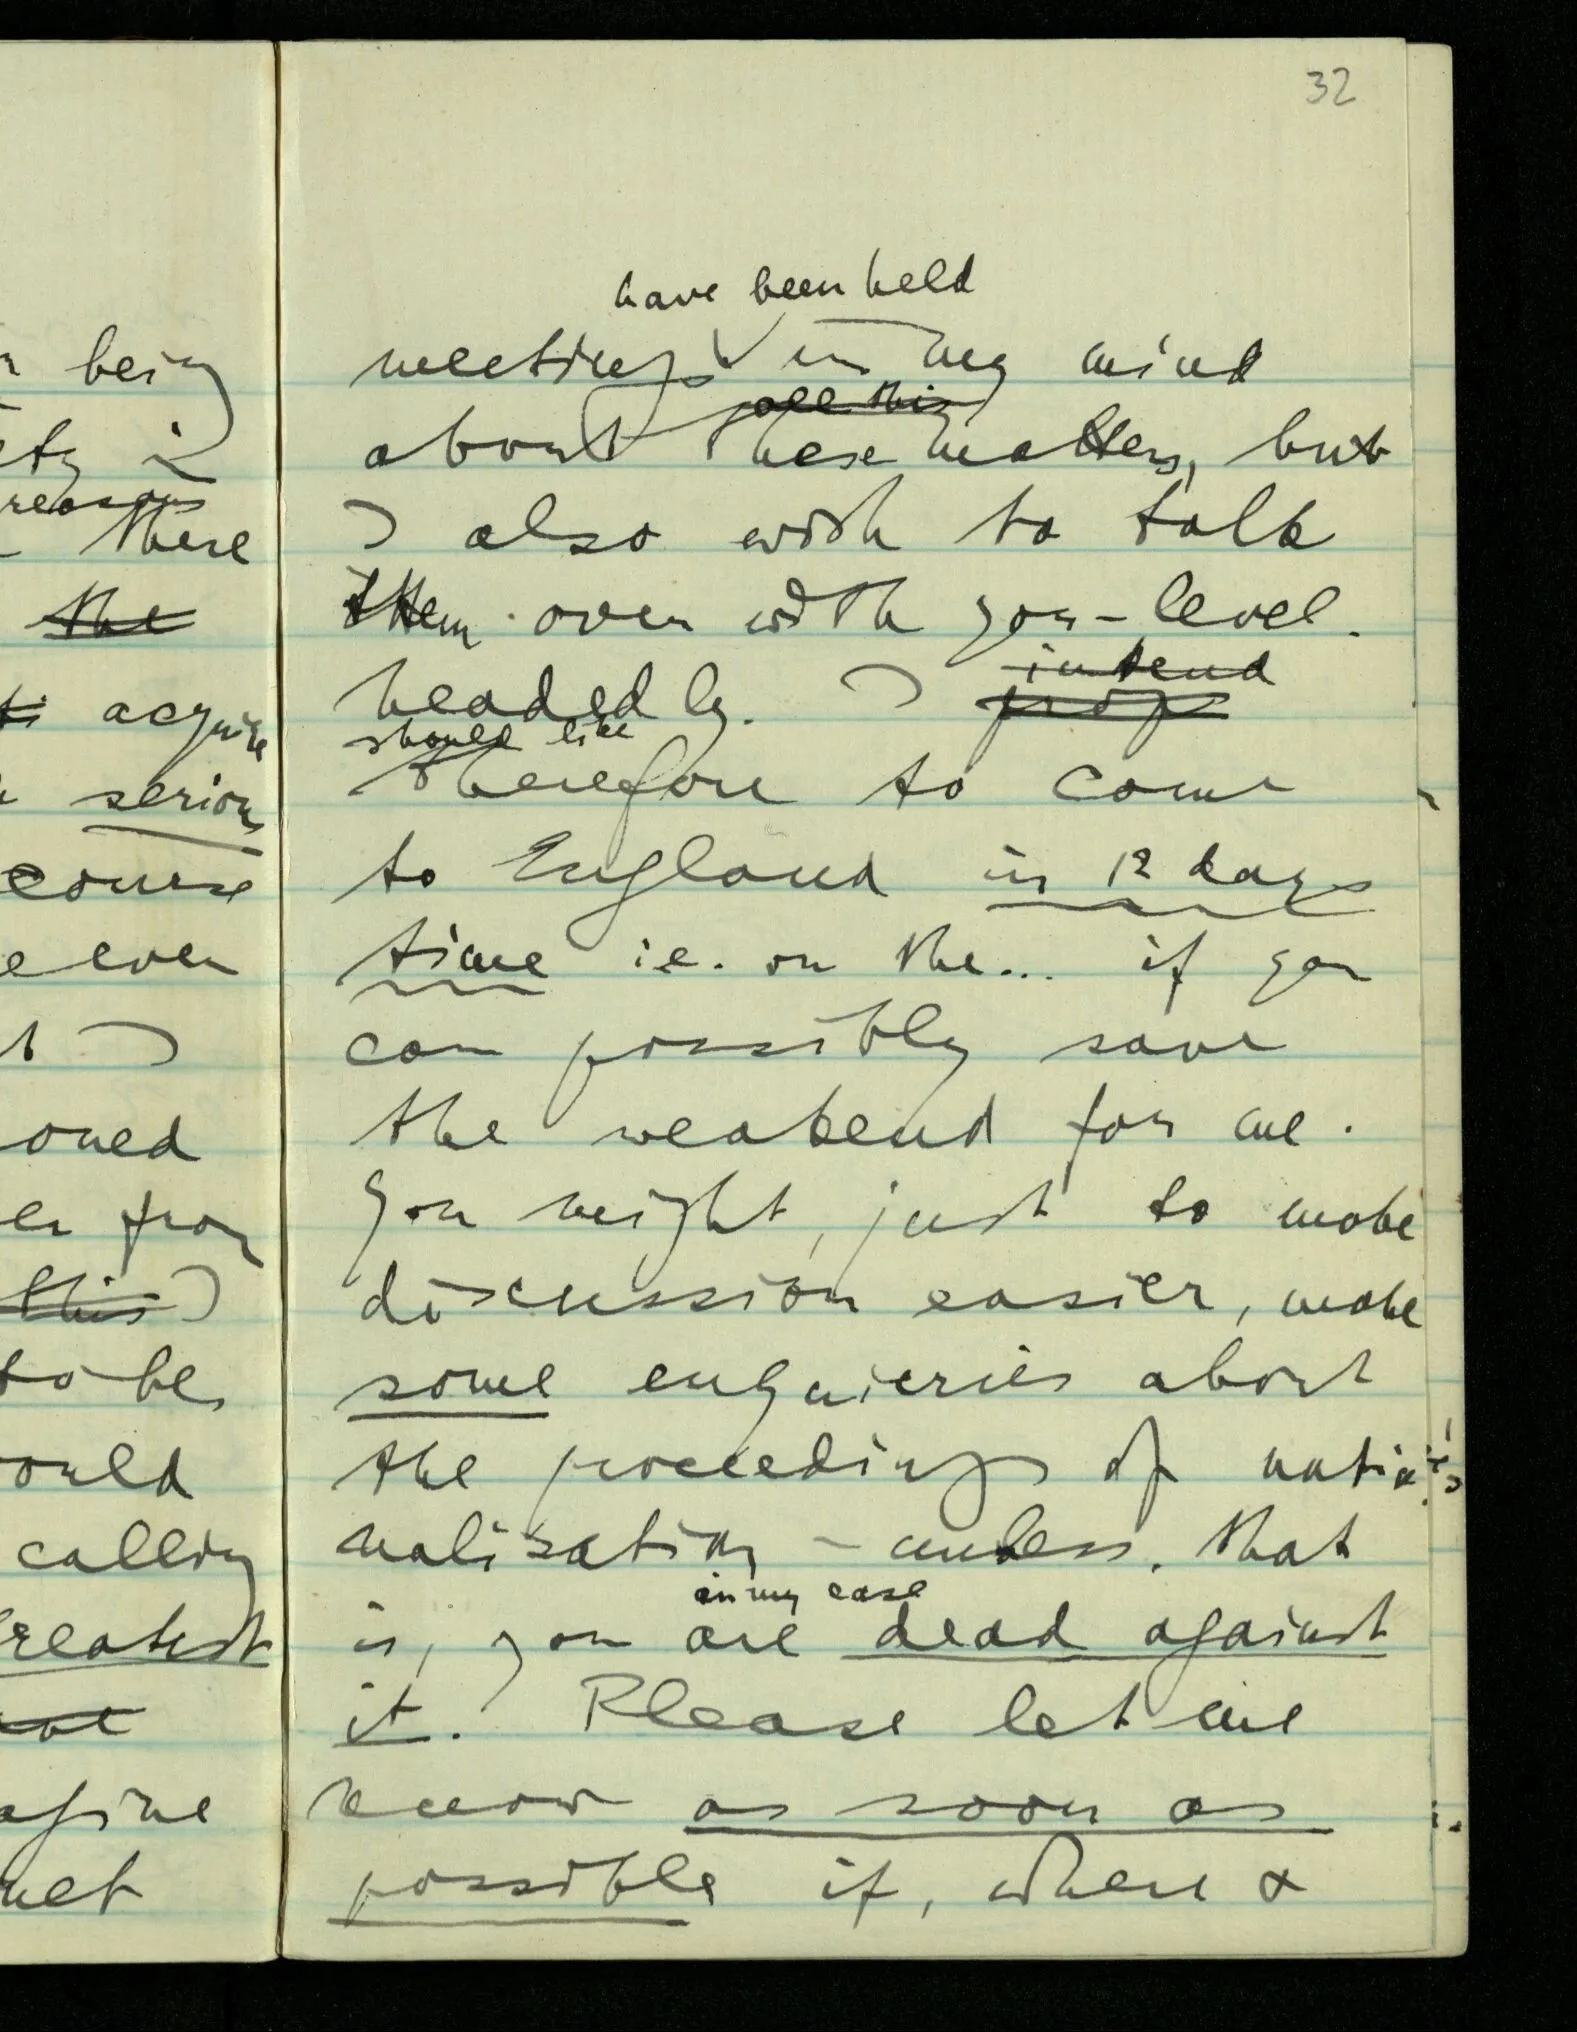 32
being
in
reasons
there
the
acquire
serious
course
even
I
oned
from
this I
to be
would
calling
greatest
not
net
have been held
meetings in my mind
all this
about these matters, but
I also wish to talk
them over with you – level-
intend
headedly. I prop
should like
therefore to come
to England in 12 days
time i.e. on the... if you
can possibly save
the weakend for me.
You might, just to make
discussion easier, make
some enquieries about
the proceedings of natio
nalisation – unless, that
in my case
is, you are dead against
it. Please let me
know as soon as
possible if, when &